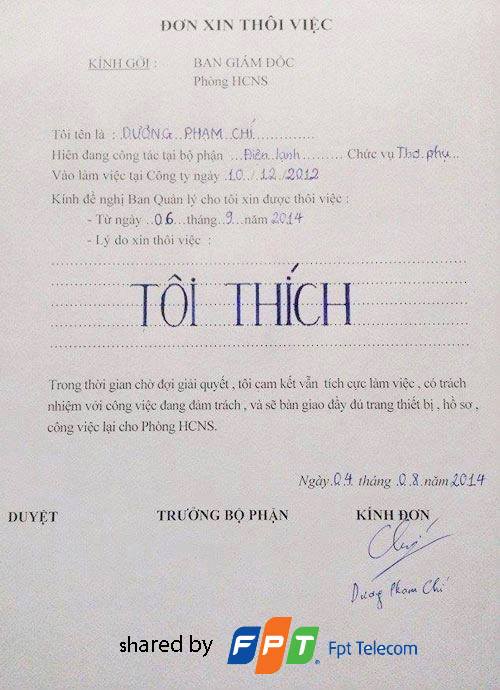 ĐƠN XIN THÔI VIỆC
KÍNH GỞI : BAN GIÁM ĐỐC
Phòng HCNS
Tôi tên là : DƯƠNG PHẠM CHÍ
Hiện đang công tác tại bộ phận ...Điện lạnh... Chức vụ Thợ phụ..
Vào làm việc tại Công ty ngày .10./.12./2012
Kính đề nghị Ban Quản lý cho tôi xin được thôi việc :
- Từ ngày ..06...tháng..9...năm 2014
- Lý do xin thôi việc :
TÔI THÍCH
Trong thời gian chờ đợi giải quyết , tôi cam kết vẫn tích cực làm việc , có trách
nhiệm với công việc đang đảm trách , và sẽ bàn giao đầy đủ trang thiết bị , hồ sơ ,
công việc lại cho Phòng HCNS.
Ngày.04. tháng .08.năm 2014
DUYỆT TRƯỞNG BỘ PHẬN KÍNH ĐƠN
Chí
Dương Phạm Chí
shared by FPT Fpt Telecom